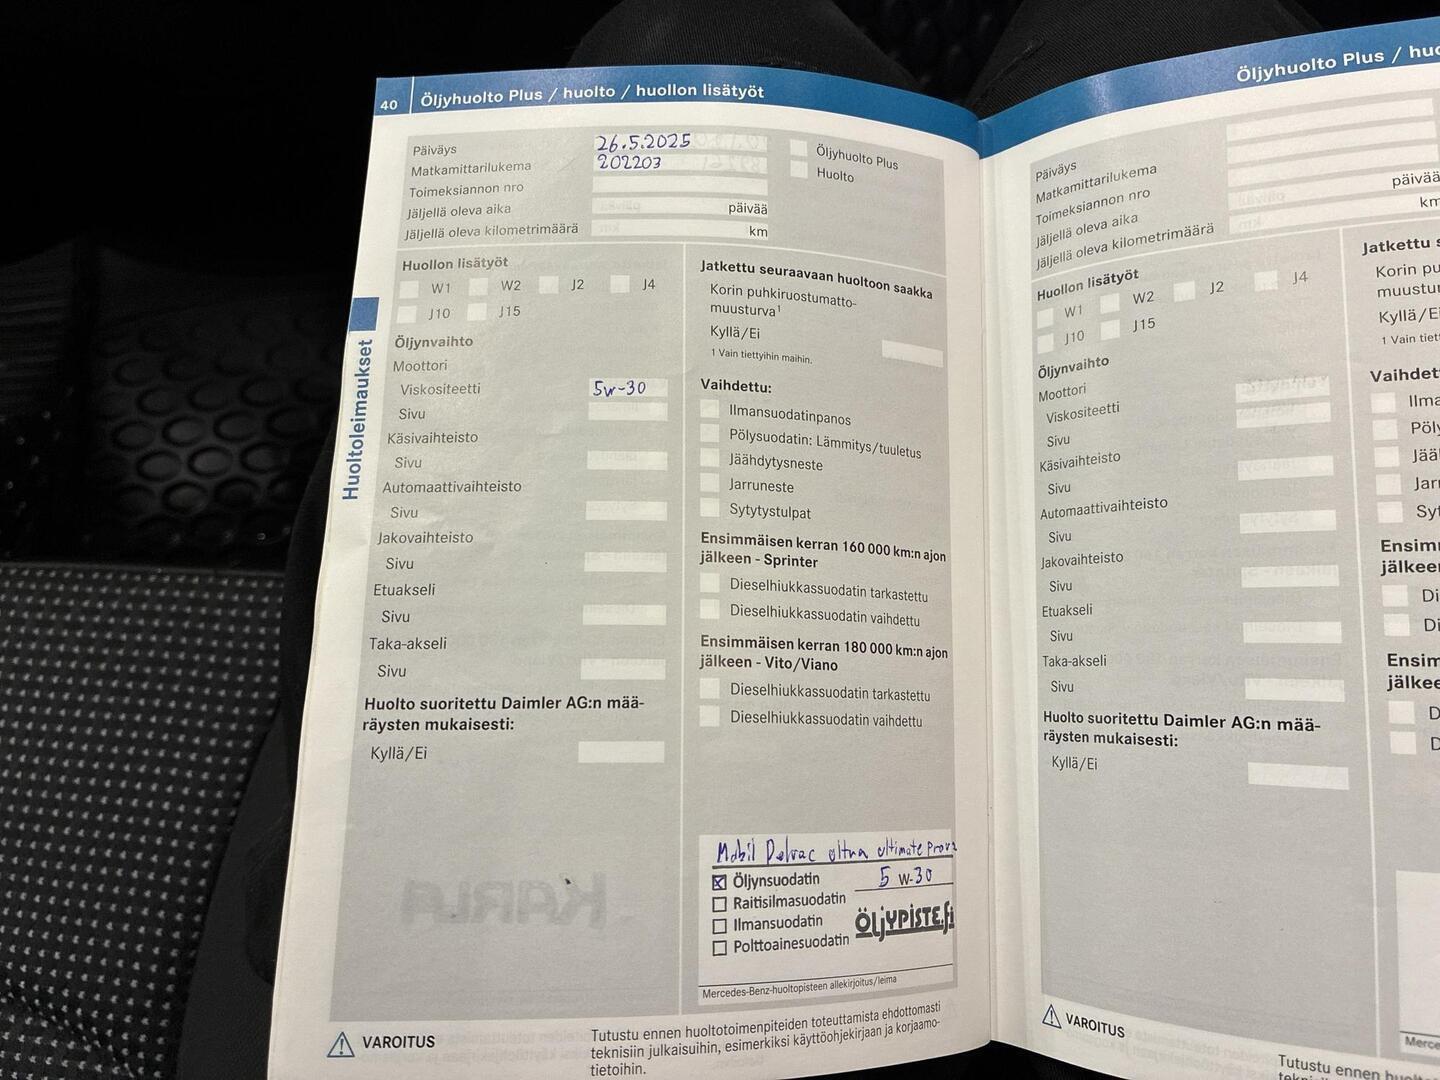 40 Öljyhuolto Plus / huolto / huollon lisätyöt
Päiväys 26.5.2025
Matkamittarilukema 202203
Toimeksiannon nro
Jäljellä oleva aika päivää
Jäljellä oleva kilometrimäärä km
Öljyhuolto Plus
Huolto
Huollon lisätyöt
W1 W2 J2 J4
J10 J15
Öljynvaihto
Moottori
Viskositeetti 5w-30
Sivu
Käsivaihteisto
Sivu
Automaattivaihteisto
Sivu
Jakovaihteisto
Sivu
Etuakseli
Sivu
Taka-akseli
Sivu
Huolto suoritettu Daimler AG:n mää-
räysten mukaisesti:
Kyllä/Ei
Huoltoleimaukset
Jatkettu seuraavaan huoltoon saakka
Korin puhkiruostumatto-
muusturva¹
Kyllä/Ei
1 Vain tiettyihin maihin.
Vaihdettu:
Ilmansuodatinpanos
Pölysuodatin: Lämmitys/tuuletus
Jäähdytysneste
Jarruneste
Sytytystulpat
Ensimmäisen kerran 160 000 km:n ajon
jälkeen - Sprinter
Dieselhiukkassuodatin tarkastettu
Dieselhiukkassuodatin vaihdettu
Ensimmäisen kerran 180 000 km:n ajon
jälkeen - Vito/Viano
Dieselhiukkassuodatin tarkastettu
Dieselhiukkassuodatin vaihdettu
Mobil Delvac ultra ultimate
Öljynsuodatin 5 W-30
Raitisilmasuodatin
Ilmansuodatin
Polttoainesuodatin
ÖLJYPISTE.fi
Mercedes-Benz-huoltopisteen allekirjoitus/leima
VAROITUS
Tutustu ennen huoltotoimenpiteiden toteuttamista ehdottomasti
teknisiin julkaisuihin, esimerkiksi käyttöohjekirjaan ja korjaamo-
tietoihin.
Öljyhuolto Plus /
Päiväys
Matkamittarilukema
Toimeksiannon nro
Jäljellä oleva aika päivää
Jäljellä oleva kilometrimäärä km
Huollon lisätyöt
W1 W2 J2 J4
J10 J15
Öljynvaihto
Moottori
Viskositeetti
Sivu
Käsivaihteisto
Sivu
Automaattivaihteisto
Sivu
Jakovaihteisto
Sivu
Etuakseli
Sivu
Taka-akseli
Sivu
Huolto suoritettu Daimler AG:n mää-
räysten mukaisesti:
Kyllä/Ei
Jatkettu
Korin
Kyllä/Ei
1 Vain
VAROITUS
Tutustu ennen